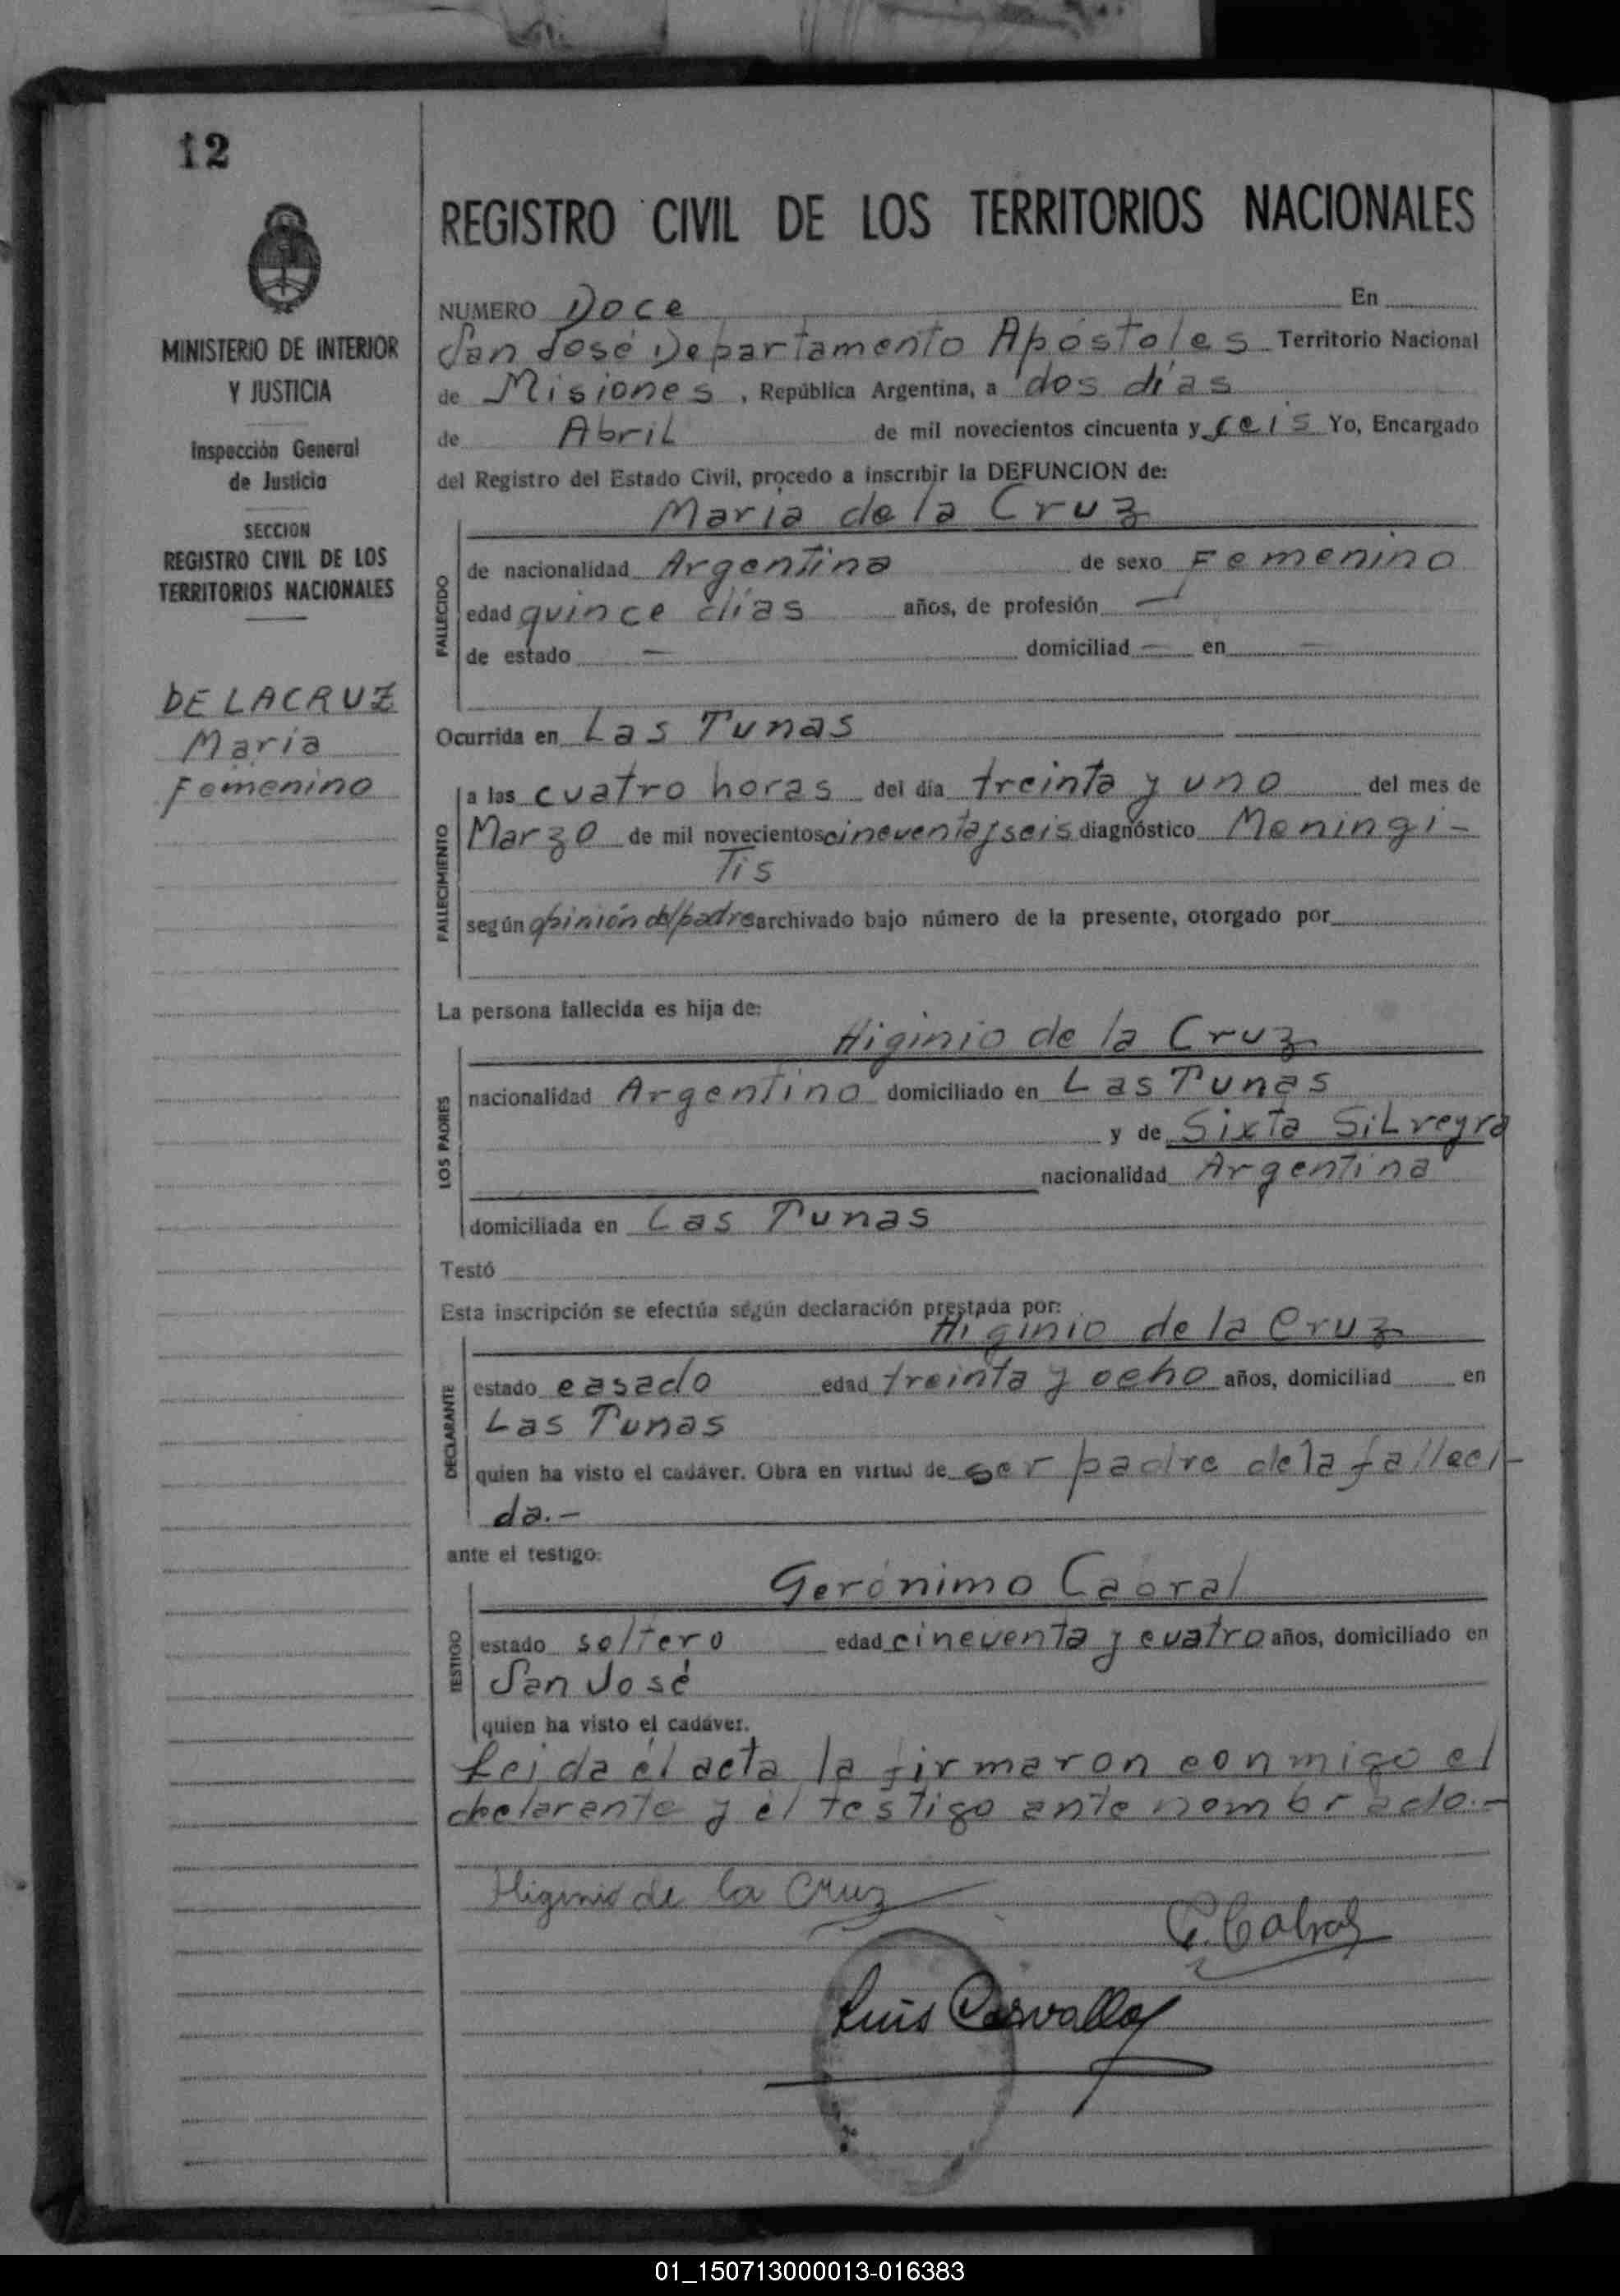 12
MINISTERIO DE INTERIOR
Y JUSTICIA
Inspección General
de Justicia
SECCION
REGISTRO CIVIL DE LOS
TERRITORIOS NACIONALES
DE LA CRUZ
María
Femenino
REGISTRO CIVIL DE LOS TERRITORIOS NACIONALES
NUMERO Doce En
San José Departamento Apóstoles Territorio Nacional
de Misiones, República Argentina, a dos días
de Abril de mil novecientos cincuenta y seis Yo, Encargado
del Registro del Estado Civil, procedo a inscribir la DEFUNCION de:
María de la Cruz
FALLECIDO
de nacionalidad Argentina de sexo Femenino
edad quince días años, de profesión —
de estado — domiciliad — en —
Ocurrida en Las Tunas
FALLECIMIENTO
a las cuatro horas del día treinta y uno del mes de
Marzo de mil novecientos cincuenta y seis diagnóstico Meningi-
tis
según opinión del padre archivado bajo número de la presente, otorgado por
La persona fallecida es hija de:
Higinio de la Cruz
LOS PADRES
nacionalidad Argentino domiciliado en Las Tunas
y de Sixta Silveyra
nacionalidad Argentina
domiciliada en Las Tunas
Testó
Esta inscripción se efectúa según declaración prestada por:
Higinio de la Cruz
DECLARANTE
estado casado edad treinta y ocho años, domiciliad en
Las Tunas
quien ha visto el cadáver. Obra en virtud de ser padre de la falleci-
da.-
ante el testigo:
Gerónimo Cabral
TESTIGO
estado soltero edad cincuenta y cuatro años, domiciliado en
San José
quien ha visto el cadáver.
Leida el acta la firmaron conmigo el
declarante y el testigo ante nombrado.-
Higinio de la Cruz
G. Cabral
Luis Carvallo
01_150713000013-016383